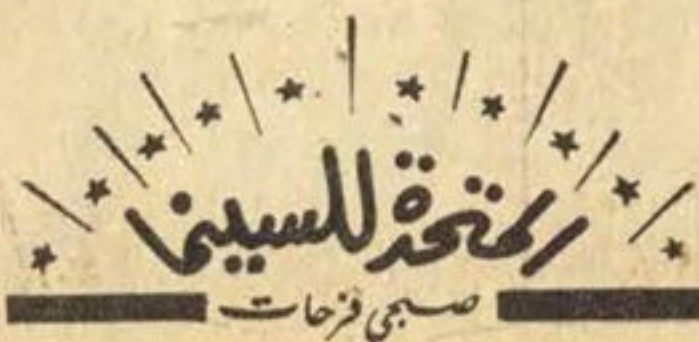 المتحدة للسينما
صبحى فرحات